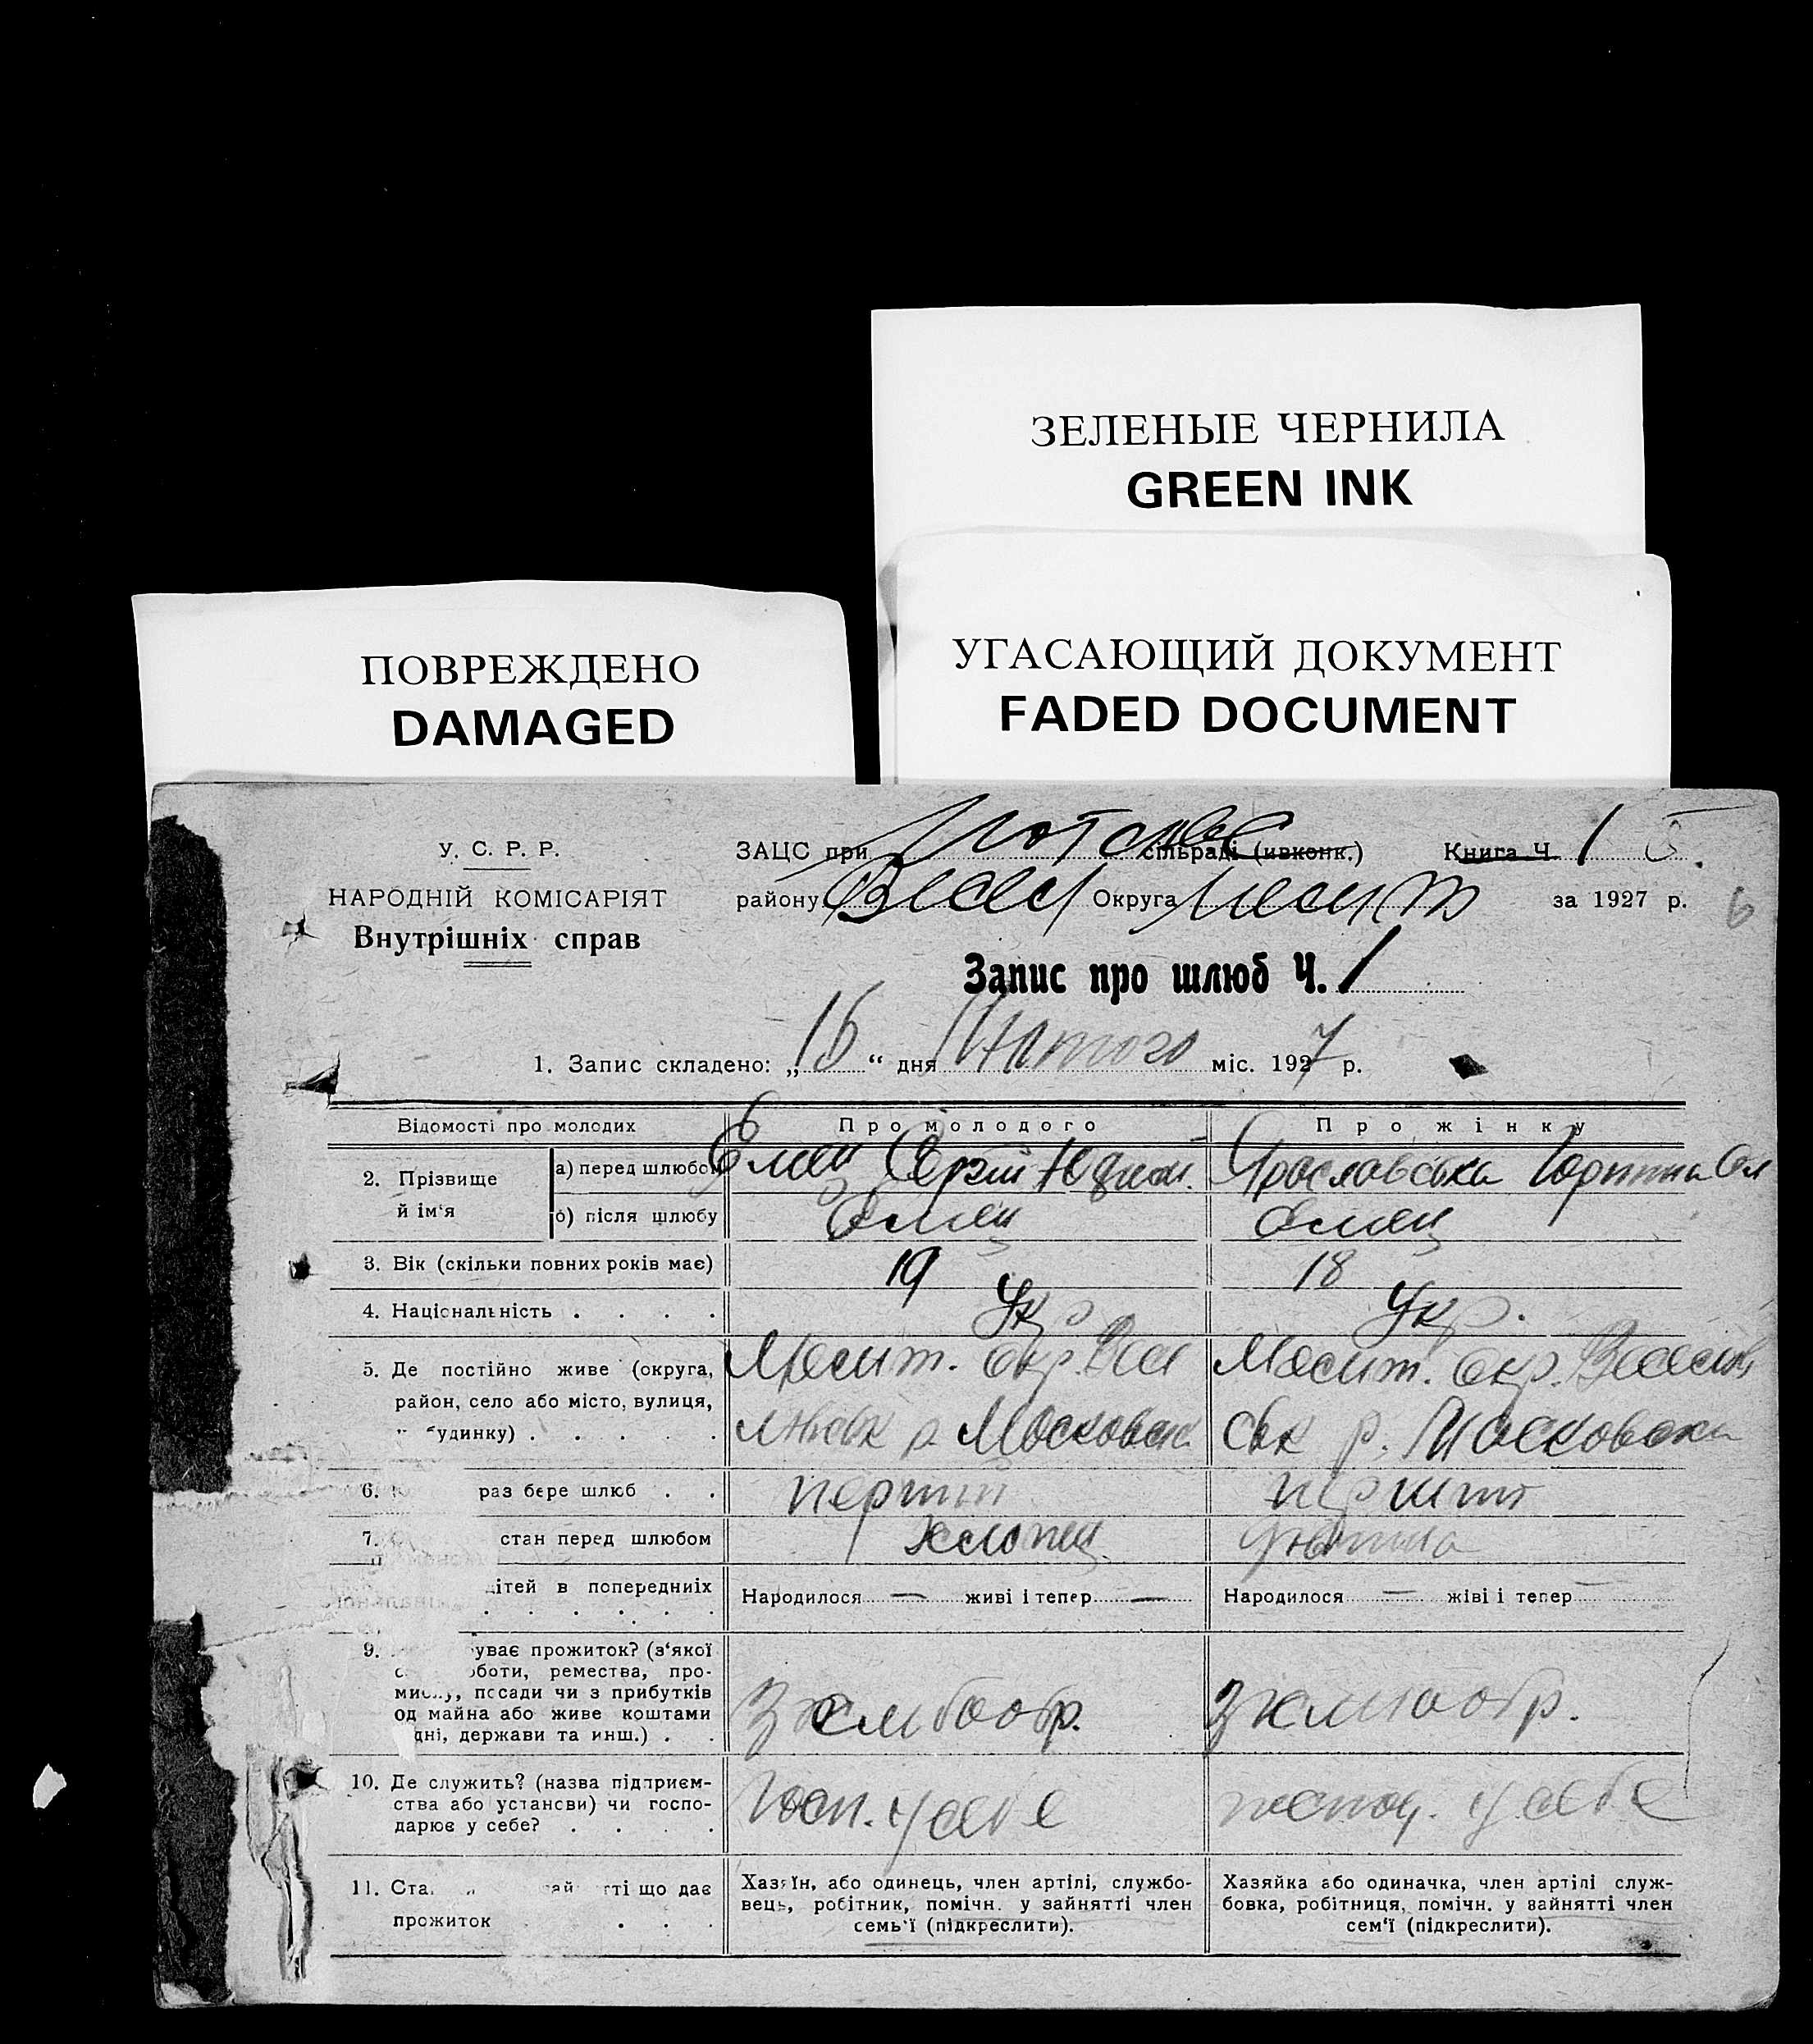 ЗЕЛЕНЫЕ ЧЕРНИЛА
GREEN INK
УГАСАЮЩИЙ ДОКУМЕНТ
FADED DOCUMENT
ПОВРЕЖДЕНО
DAMAGED
У. С. Р. Р.
НАРОДНІЙ КОМІСАРІЯТ
Внутрішніх справ
ЗАЦС при сільраді (ивконк.) Книга Ч. 1
району Округа за 1927 р. 6
Запис про шлюб Ч. 1
1. Запис складено: „16“ дня Лютого міс. 1927 р.
Відомості про молодих Про молодого Про жінку
2. Прізвище й ім'я
а) перед шлюбом Ємец Сергій Ярославська
б) після шлюбу Ємец Ємец
3. Вік (скільки повних років має) 19 18
4. Національність . . . . Укр. Укр.
5. Де постійно живе (округа, Меліт. окр. Вес Меліт. окр. Веселов
район, село або місто, вулиця, р. Московка ськ р. Московка
будинку) . . . . .
6. раз бере шлюб . . перший перший
7. стан перед шлюбом хлопец дівчина
ітей в попередниіх Народилося — живі і тепер — Народилося — жіві і тепер
9. ває прожиток? (з'якої
оботи, ремества, про-
мислу, посади чи з прибутків
од майна або живе коштами
дні, держави та инш.) . . З хлібообр. З хлібообр.
10. Де служить? (назва підприєм-
ства або установи) чи госпо-
дарює у себе? . . . . Госп. у себе господ. у себе
11. Ста ті що дає
прожиток . . .
Хазяїн, або одинець, член артілі, службо-
вець, робітник, помічн. у зайнятті член
семь'ї (підкреслити).
Хазяйка або одиначка, член артілі служ-
бовка, робітниця, помічн. у зайнятті член
сем'ї (підкреслити).